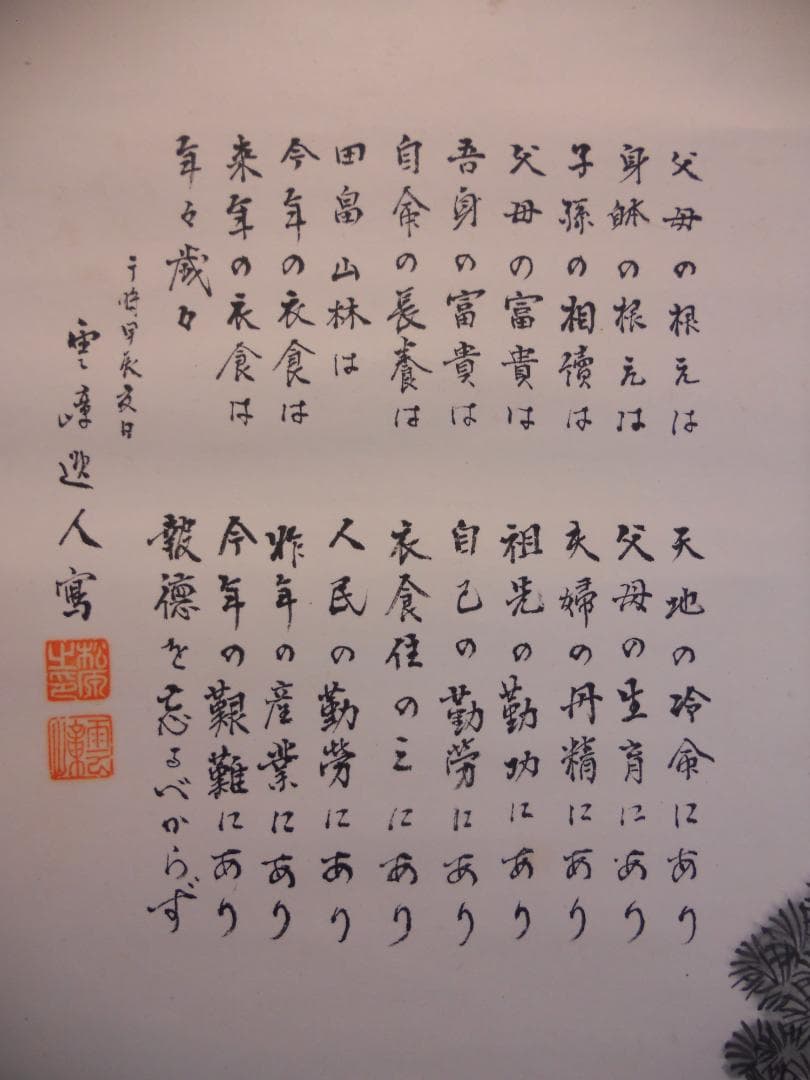 父母の根元は 天地の冷命にあり
身躰の根元は 父母の生育にあり
子孫の相續は 夫婦の丹精にあり
父母の富貴は 祖先の勤功にあり
吾身の富貴は 自己の勤労にあり
自命の長養は 衣食住の三にあり
田畠山林は 人民の勤労にあり
今年の衣食は 昨年の産業にあり
来年の衣食は 今年の艱難にあり
年々歳々 報徳を忘るべからず
于時甲辰夏日
人寫